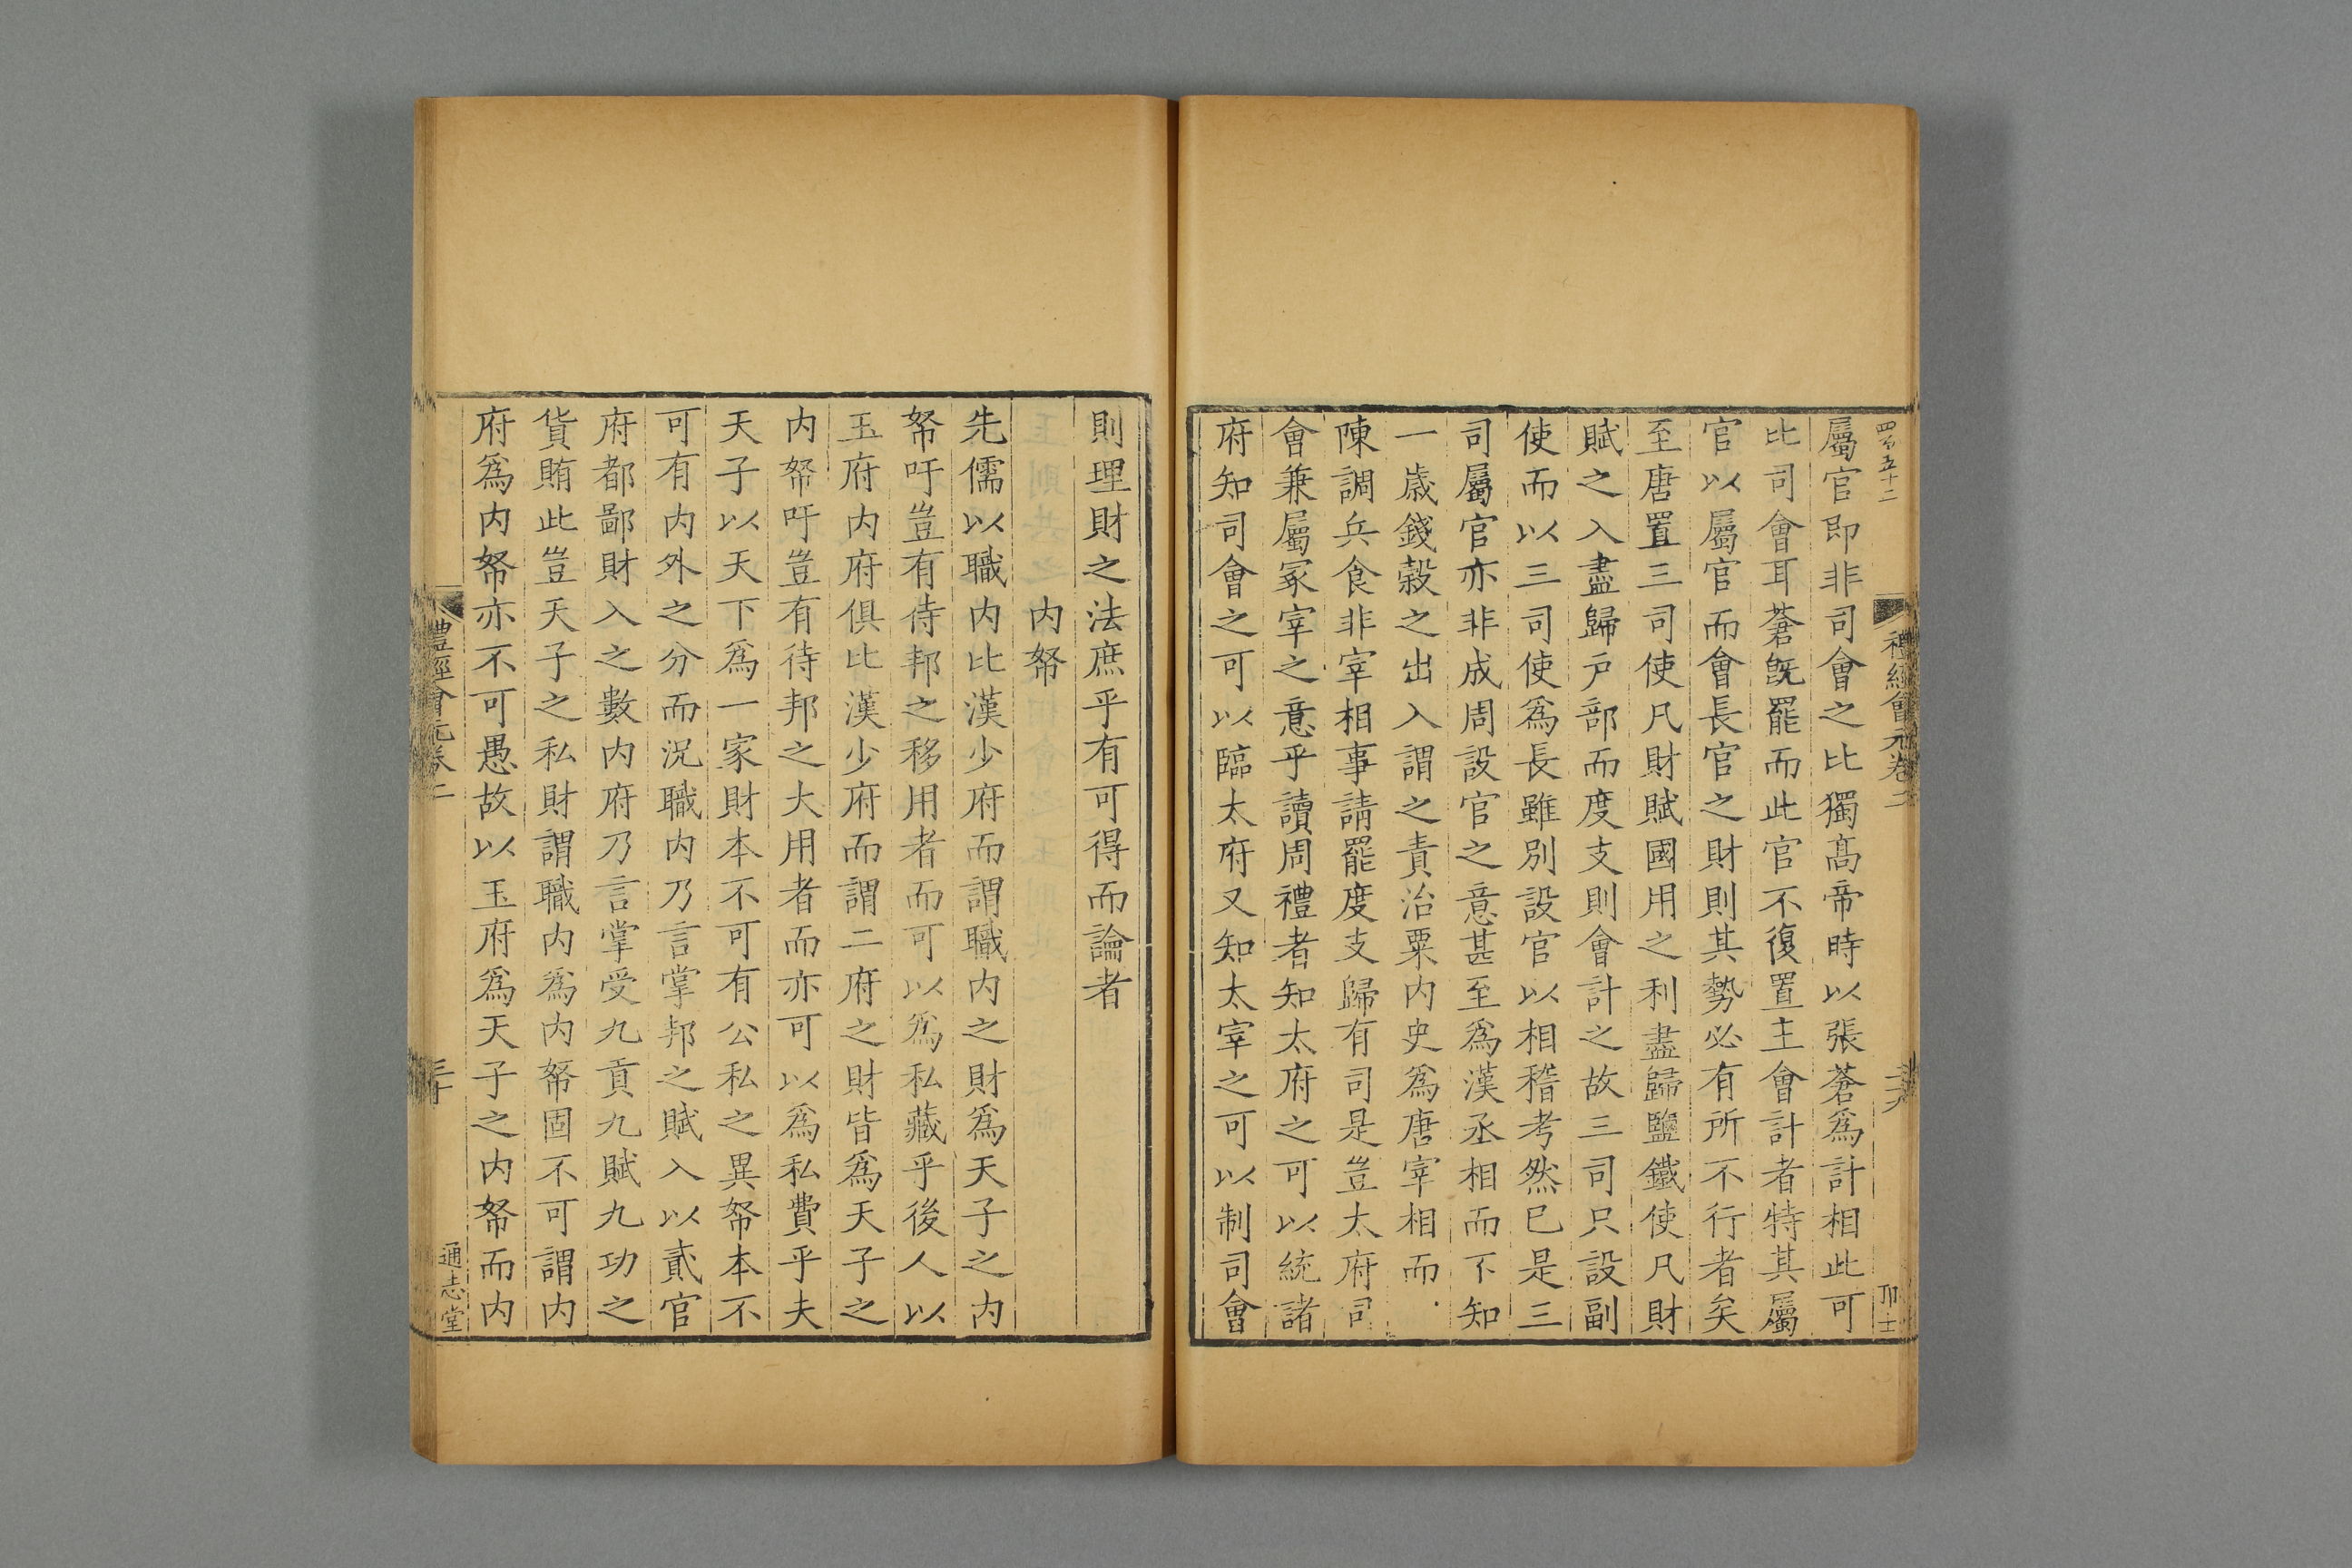 四百五十二
禮經會元卷二
屬官即非司會之比獨髙帝時以張蒼爲計相此可
比司會耳蒼旣罷而此官不復置主會計者特其屬
官以屬官而會長官之財則其勢必有所不行者矣
至唐置三司使凡財賦國用之利盡歸鹽鐵使凡財
賦之入盡歸户部而度支則會計之故三司只設副
使而以三司使爲長雖別設官以相稽考然巳是三
司屬官亦非成周設官之意甚至爲漢丞相而不知
一歳錢榖之出入謂之責治粟内史爲唐宰相而
陳調兵食非宰相事請罷度支歸有司是豈太府司
會兼屬冢宰之意乎讀周禮者知太府之可以統諸
府知司會之可以臨太府又知太宰之可以制司會
則理財之法庶乎有可得而論者
内帑
先儒以職内比漢少府而謂職内之財爲天子之内
帑吁豈有待邦之移用者而可以爲私藏乎後人以
玉府内府俱比漢少府而謂二府之財皆爲天子之
内帑吁豈有待邦之大用者而亦可以爲私費乎夫
天子以天下爲一家財本不可有公私之異帑本不
可有内外之分而况職内乃言掌邦之賦入以貳官
府都鄙財入之數内府乃言掌受九貢九賦九功之
貨賄此豈天子之私財謂職内爲内帑固不可謂内
府爲内帑亦不可愚故以玉府爲天子之内帑而内
禮經會元卷二
三十
通志堂